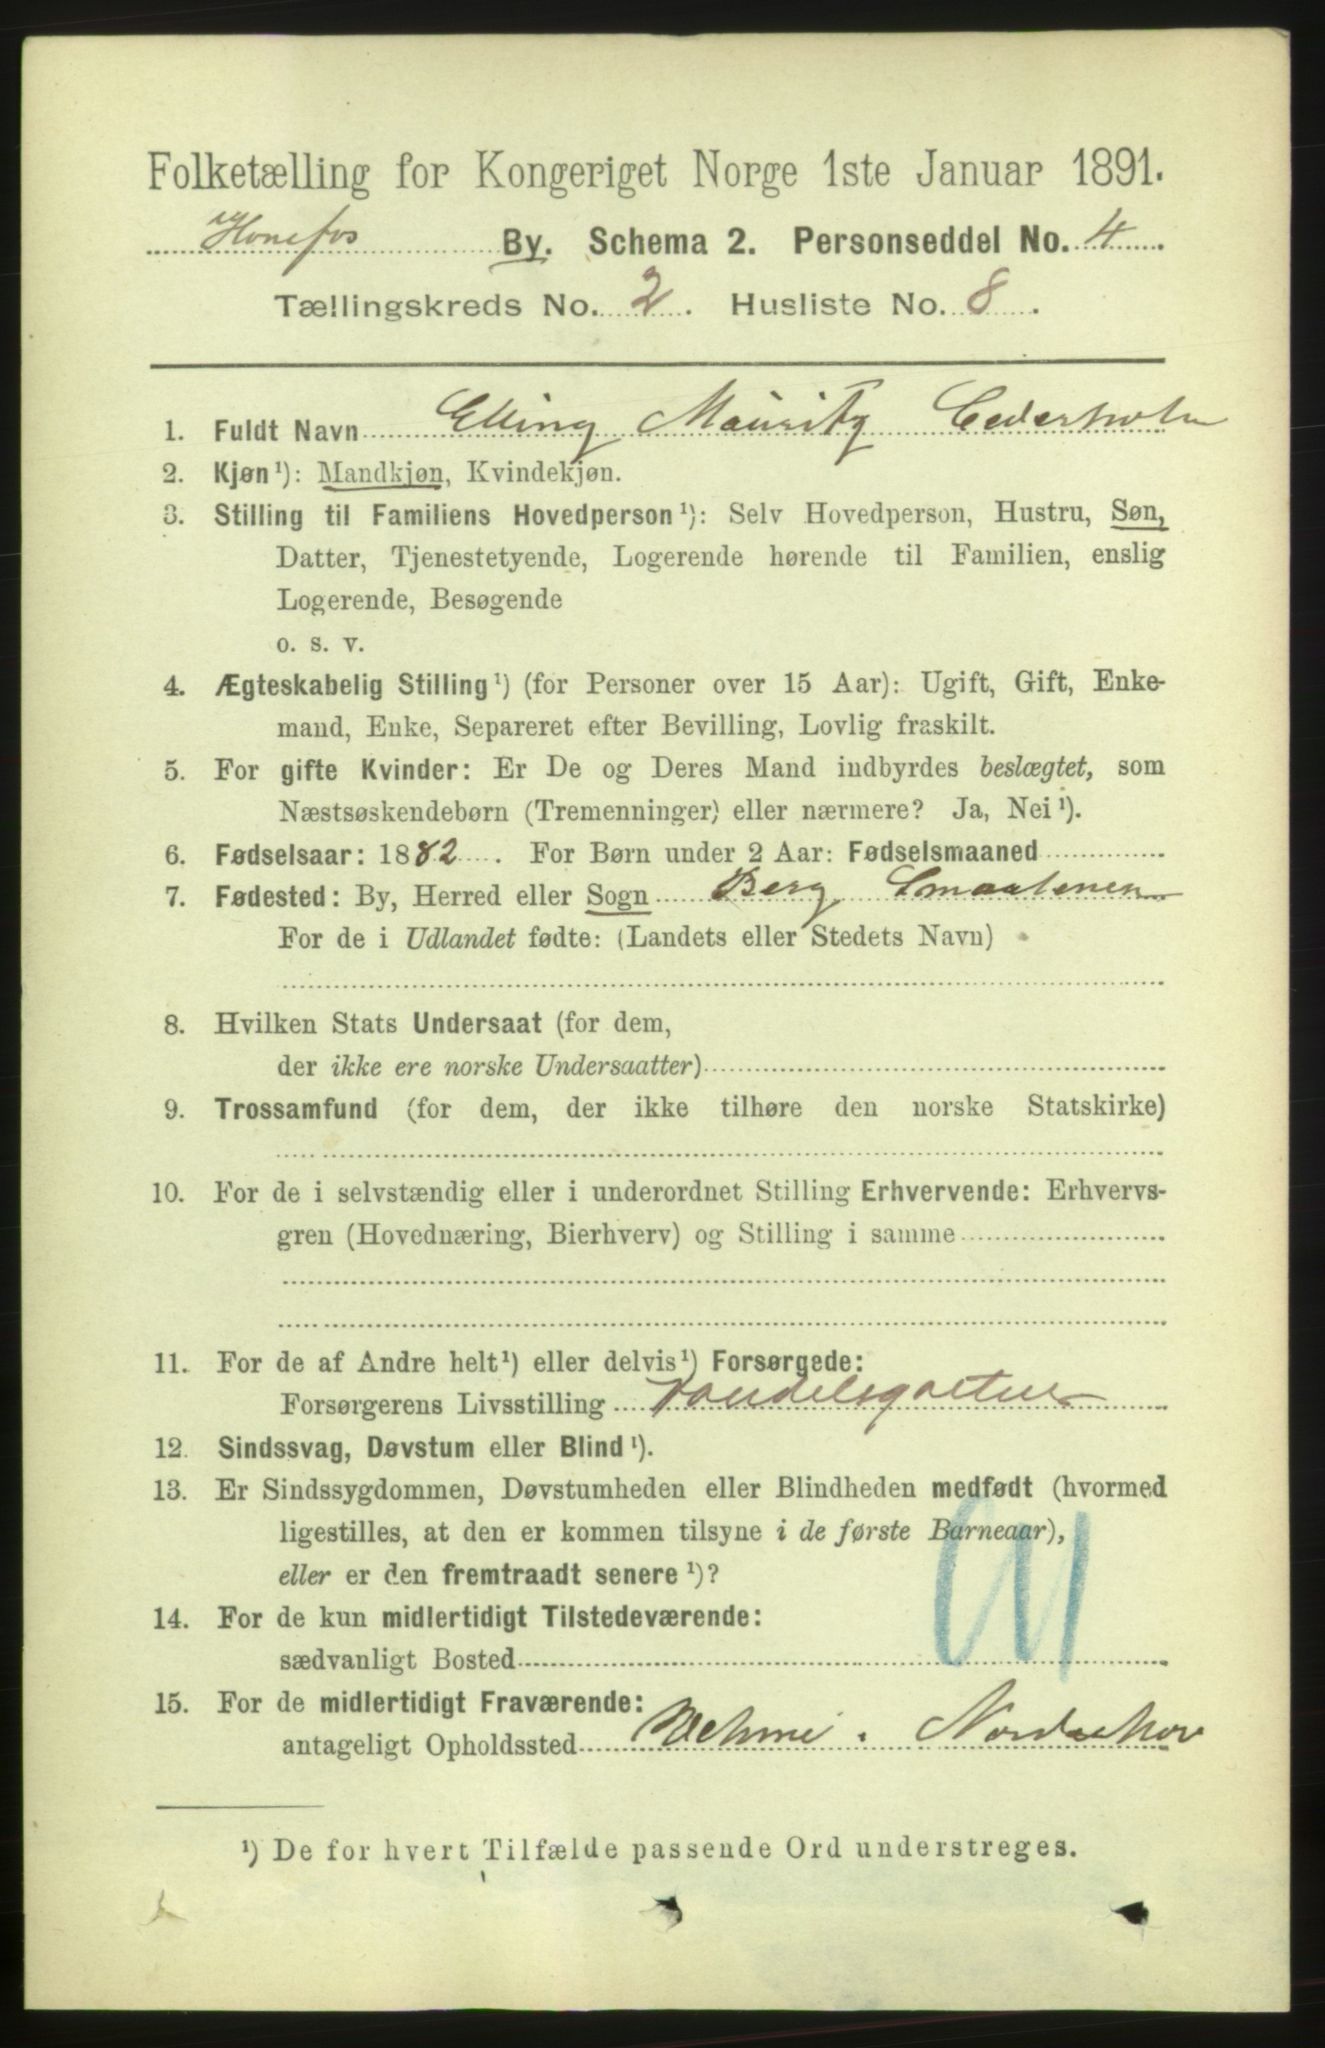 Folketælling for Kongeriget Norge 1ste Januar 1891.
Hønefos By. Schema 2. Personseddel No. 4.
Tællingskreds No. 2. Husliste No. 8.
1. Fuldt Navn Elling Mauritz Cederholm
2. Kjøn¹): Mandkjøn, Kvindekjøn.
3. Stilling til Familiens Hovedperson¹): Selv Hovedperson, Hustru, Søn,
Datter, Tjenestetyende, Logerende hørende til Familien, enslig
Logerende, Besøgende
o. s. v.
4. Ægteskabelig Stilling¹) (for Personer over 15 Aar): Ugift, Gift, Enke-
mand, Enke, Separeret efter Bevilling, Lovlig fraskilt.
5. For gifte Kvinder: Er De og Deres Mand indbyrdes beslægtet, som
Næstsøskendebørn (Tremenninger) eller nærmere? Ja, Nei¹).
6. Fødselsaar: 1882. For Børn under 2 Aar: Fødselsmaaned
7. Fødested: By, Herred eller Sogn Berg Smaalenen
For de i Udlandet fødte: (Landets eller Stedets Navn)
8. Hvilken Stats Undersaat (for dem,
der ikke ere norske Undersaatter)
9. Trossamfund (for dem, der ikke tilhøre den norske Statskirke)
10. For de i selvstændig eller i underordnet Stilling Erhvervende: Erhvervs-
gren (Hovednæring, Bierhverv) og Stilling i samme
11. For de af Andre helt¹) eller delvis¹) Forsørgede:
Forsørgerens Livsstilling Handelsgartner
12. Sindssvag, Døvstum eller Blind¹).
13. Er Sindssygdommen, Døvstumheden eller Blindheden medfødt (hvormed
ligestilles, at den er kommen tilsyne i de første Barneaar),
eller er den fremtraadt senere¹)?
14. For de kun midlertidigt Tilstedeværende:
sædvanligt Bosted
15. For de midlertidigt Fraværende:
antageligt Opholdssted Vehme. Norderhov
¹) De for hvert Tilfælde passende Ord understreges.